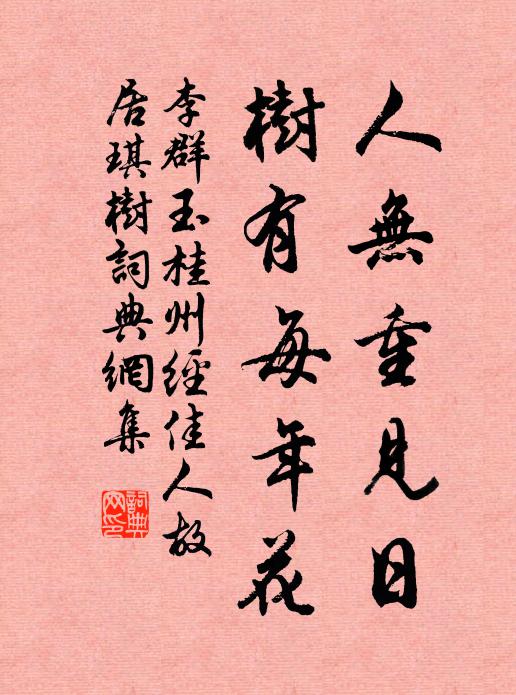 人無重見日
樹有每年花
李群玉桂州經佳人故
居琪樹詞典網集
詞典网印